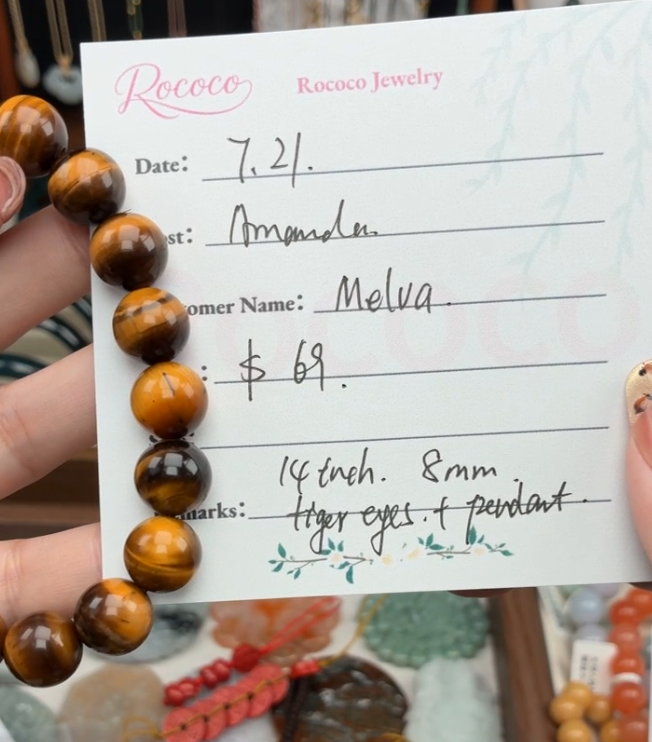 Rococo Rococo Jewelry
Date: 7.21.
st: Amanda.
omer Name: Melva.
: $ 69.
14 inch. 8mm.
marks: tiger eyes. + pendant.